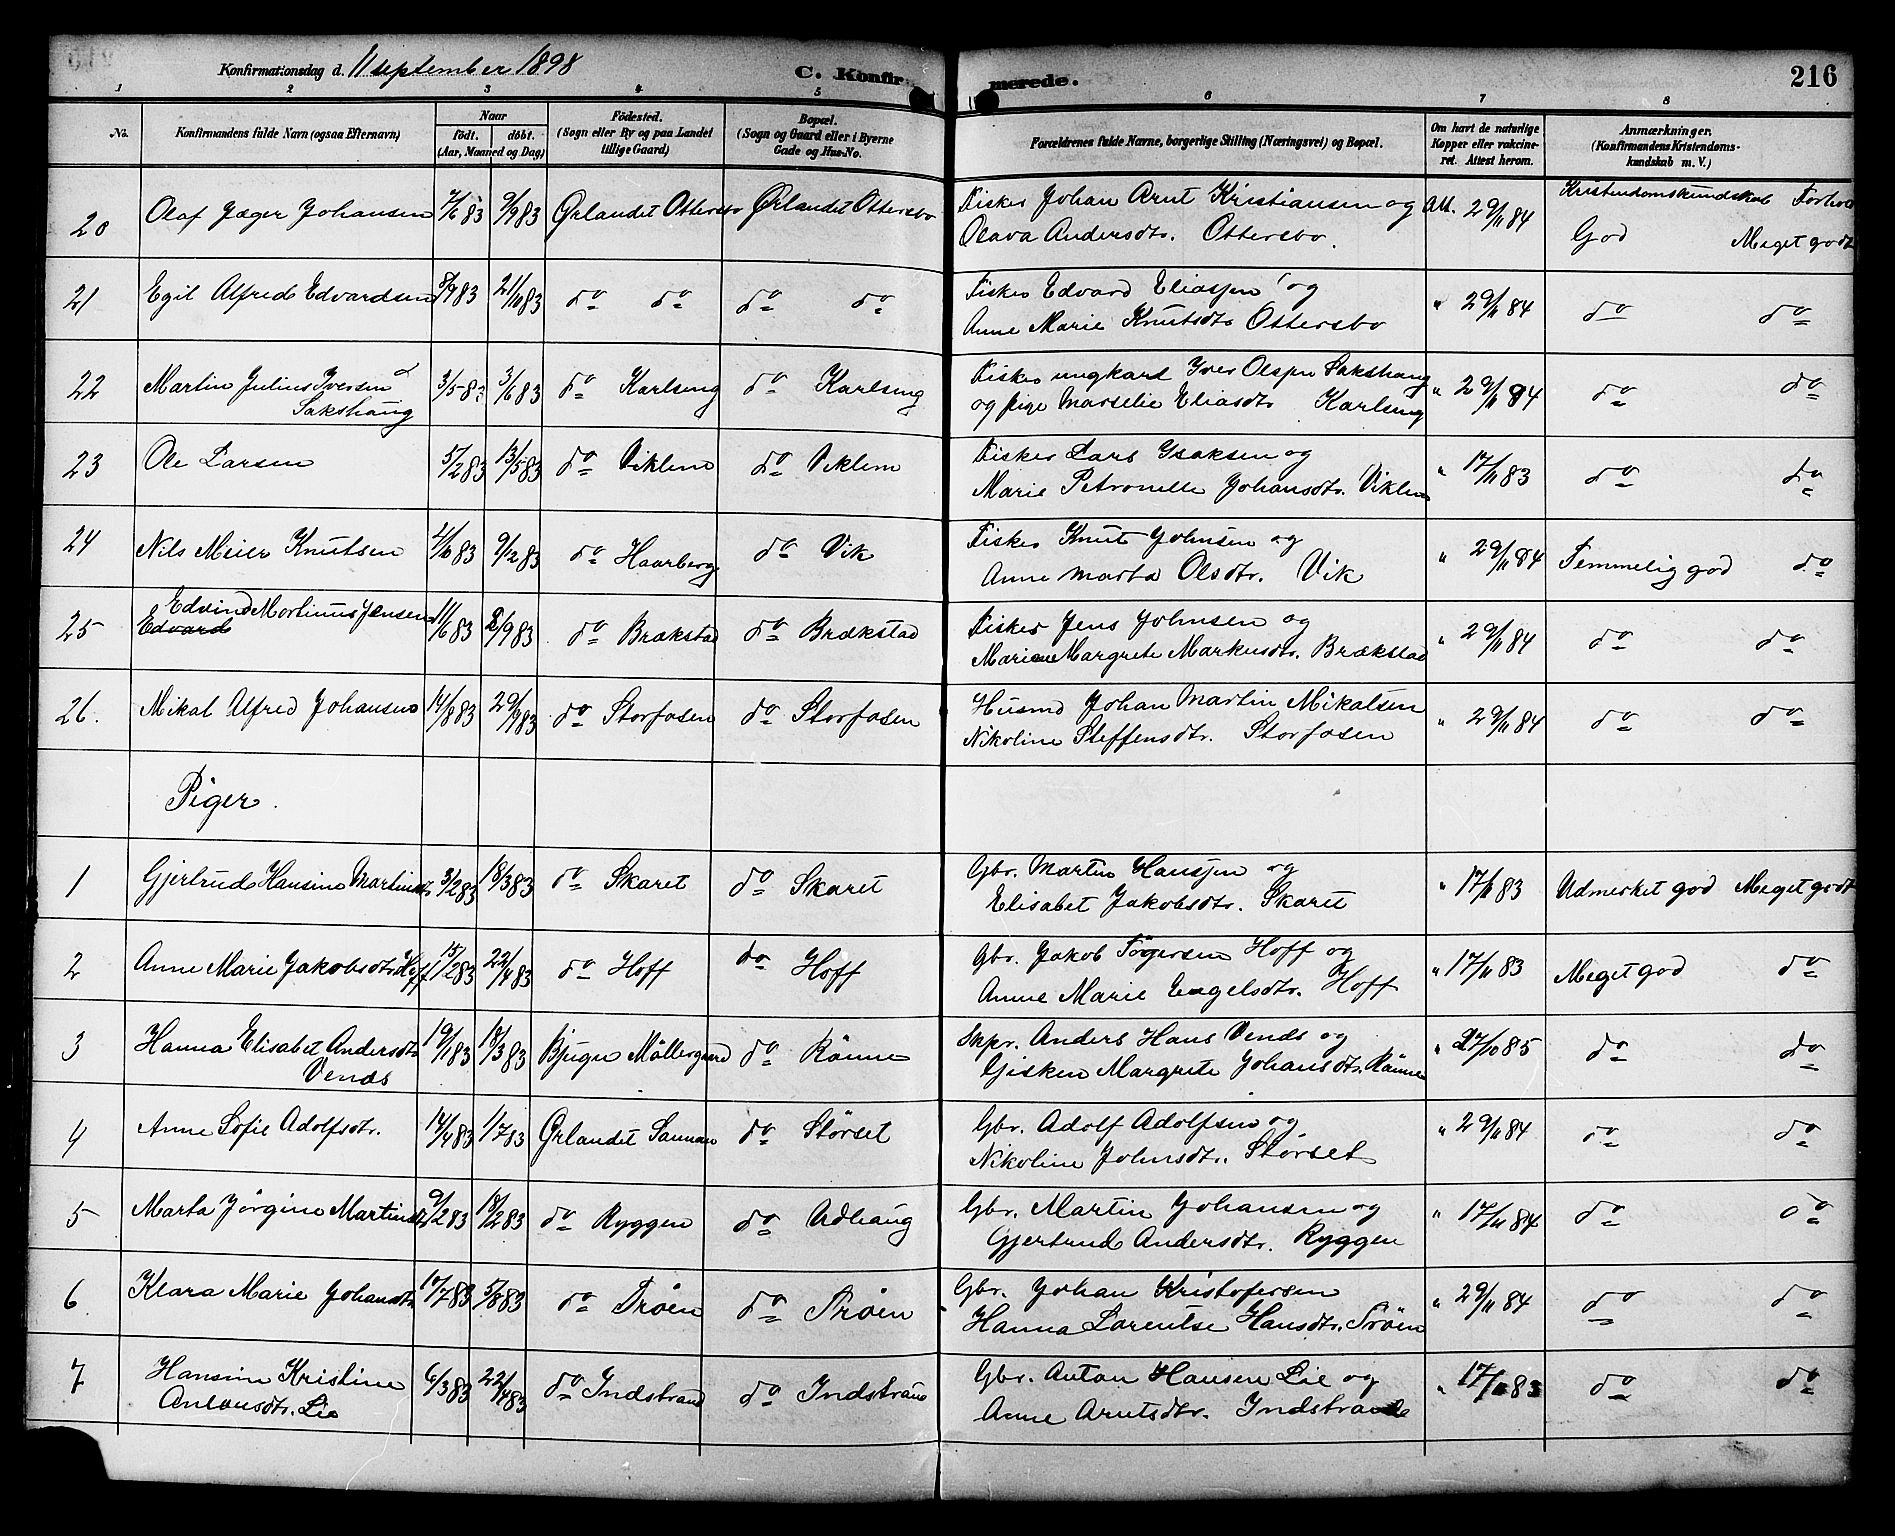 Konfirmationsdag d. 11 september 1898
C. Konfirmerede.
216
1 2 3 4 5 6 7 8
No.
Konfirmandens fulde Navn (ogsaa Efternavn)
Naar
födt. döbt.
(Aar, Maaned og Dag)
Födested.
(Sogn eller By og paa Landet
tillige Gaard)
Bopæl.
(Sogn og Gaard eller i Byerne
Gade og Hus-No.
Forældrenes fulde Navne, borgerlige Stilling (Næringsvei) og Bopæl.
Om havt de naturlige
Kopper eller vakcine-
ret. Attest herom.
Anmærkninger.
(Konfirmandens Kristendoms-
kundskab m. V.)
20 Olaf Jæger Johansen 7/6 83 9/9 83 Ørlandet Ottersbo Ørlandet Ottersbo Fisker Johan Arnt Kristiansen og Att. 29/11 84 Kristendomskundskab Forhold
Olava Andersdtr. Ottersbo. God Meget godt
21 Egil Alfred Edvardsen 8/9 83 21/10 83 do do do do Fisker Edvard Eliassen og " 29/11 84 do do
Anne Marie Knutsdtr Ottersbo
22 Martin Julius Iversen 3/5 83 3/6 83 do Karlseng do Karlseng Fisker ungkarl Iver Olsen Sakshaug " 29/11 84 do do
Sakshaug og pige Marselie Eliasdtr Karlseng
23 Ole Larsen 5/2 83 13/5 83 do Viklem do Viklem Fisker Lars Isaksen og " 17/11 83 do do
Marie Petronelle Johansdtr. Viklem
24 Nils Meier Knutsen 4/6 83 9/12 83 do Haarberg do Vik Fisker Knut Johnsen og " 29/11 84 Temmelig god do
Anne Marta Olsdtr. Vik
25 Edvind Martinus Jensen 11/6 83 2/9 83 do Brækstad do Brækstad Fisker Jens Johnsen og " 29/11 84 do do
Edvard Mariane Margrete Markusdtr. Brækstad
26. Mikal Alfred Johansen 14/8 83 29/9 83 do Storfosen do Storfosen Husmd Johan Martin Mikalsen " 29/11 84 do do
Nikoline Steffensdtr. Storfosen
Piger.
1 Gjertrud Hansine Martinsdtr 3/2 83 18/3 83 do Skaret do Skaret Gbr. Martin Hanssen og " 17/11 83 Udmerket god Meget godt
Elisabet Jakobsdtr. Skaret
2 Anne Marie Jakobsdtr Hoff 15/2 83 22/4 83 do Hoff do Hoff Gbr. Jakob Tøgersen Hoff og " 17/11 83 Meget god do
Anne Marie Engelsdtr. Hoff
3 Hanna Elisabet Andersdtr 19/1 83 18/3 83 Bjugn Møllegaard do Rønne Skpr. Anders Hans Vends og " 27/10 85 do do
Vends Gisken Margrete Johansdtr. Rønne
4 Anne Sofie Adolfsdtr. 14/4 83 1/7 83 Ørlandet do Størset Gbr. Adolf Adolfsen og " 29/11 84 do do
Nikoline Johnsdtr. Størset
5 Marta Jørgine Martinsdtr 9/2 83 18/2 83 do Ryggen do Udhaug Gbr. Martin Johansen og " 17/11 84 do do
Gjertrud Andersdtr. Ryggen
6 Klara Marie Johansdtr 17/7 83 5/8 83 do Trøen do Trøen Gbr. Johan Kristofersen " 29/11 84 do do
Hanna Lorentse Hansdtr. Trøen
7 Hansine Kristine 6/3 83 22/4 83 do Indstrand do Indstrand Gbr. Anton Hansen Lie og " 17/11 83 do do
Antonsdtr. Lie Anne Arntsdtr. Indstrand